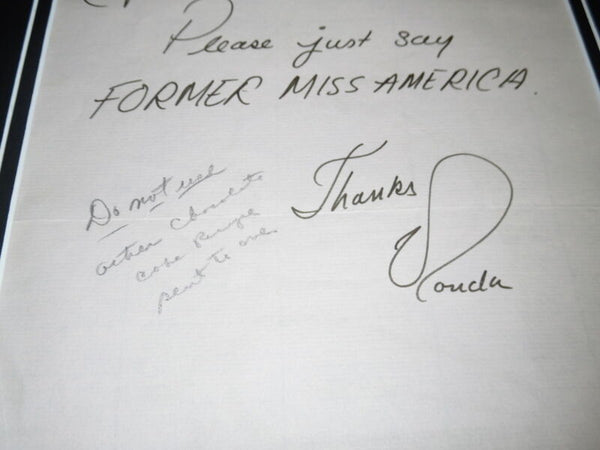 Please just say
FORMER MISS AMERICA.
Thanks
Vonda
Do not use
other Chocolate
cake Recipe
sent to one.